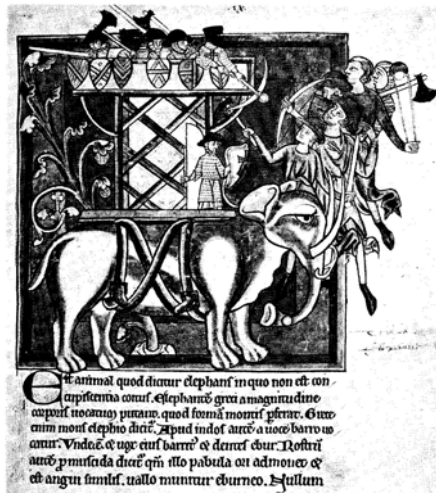 Est animal quod dicitur elephans in quo non est con
cupiscentia coitus. Elephantē greci a magnitudine
corporis uocatum putant, quod formā montis pferat. Grece
enim mons elephio dicit̃. Apud indos autē a uoce barro uo
catur. Vnde & uox eius barrit᷒ & dentes ebur. Rostrū
autē pmuscida dicit̃ qm̄ illo pabula ori admouet &
est angui similis. uallo munitur eburneo. Nullum